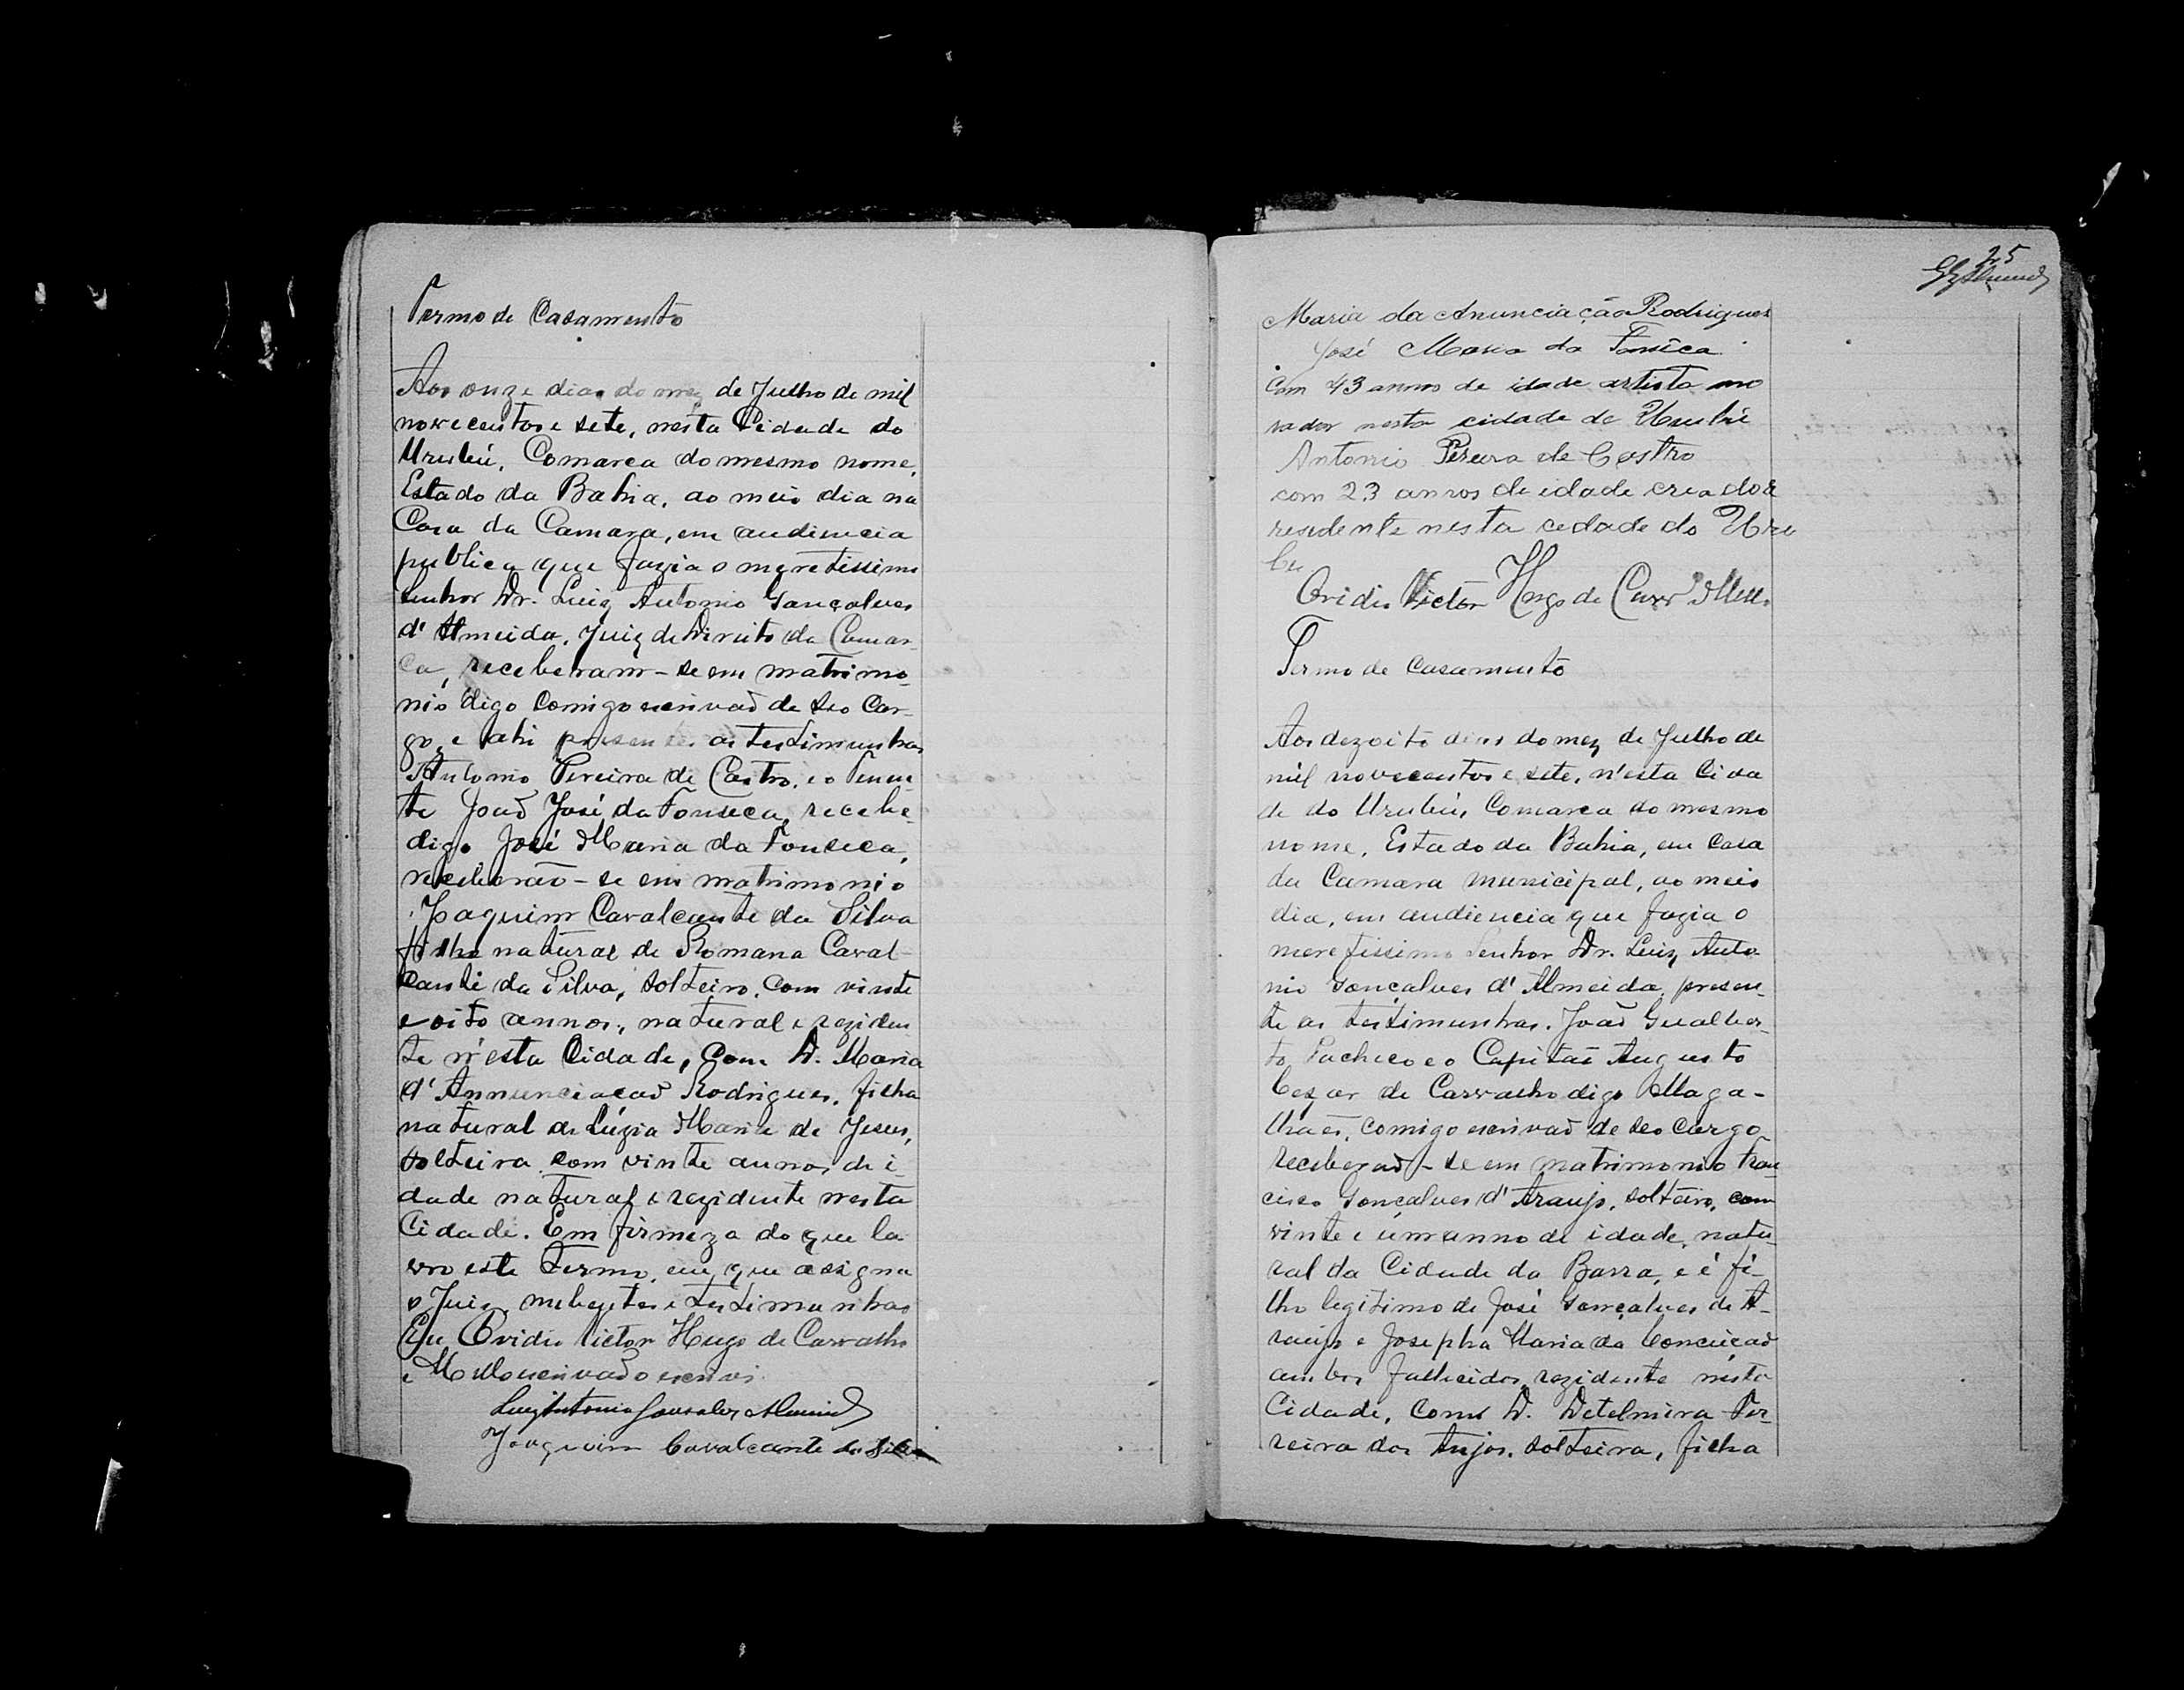 Termo de Casamento
Aos onze dias do mez de Julho de mil
novecentos e sete, nesta Cidade do
Urubú, Comarca do mesmo nome,
Estado da Bahia, ao meio dia na
Casa da Camara, em audiencia
publica que fazia o meretissimo
Senhor Dr. Luiz Antonio Gonçalves
d'Almeida, Juiz de Direito da Comar-
ca, receberam-se em matrimo-
nio digo comigo escrivaõ de seo Car-
go, e ahi presentes as testimunhas
Antonio Pereira de Castro, e o Tenen-
te Joaõ José da Fonseca, recebe-
digo José Maria da Fonseca,
receberão-se em matrimonio
Joaquim Cavalcante da Silva
filho natural de Romana Caval-
cante da Silva, solteiro, com vinte
e oito annos, natural e reziden
te n'esta Cidade, com D. Maria
d'Annunciacaõ Rodrigues, filha
natural de Lúzia Maria de Jesus,
solteira com vinte annos de i-
dade natural e rezidente nesta
Cidade. Em firmeza do que la-
vro este termo, em que assigna
o Juiz, nubentes e testimunhas
Eu Ovidio Victor Hugo de Carvalho
e Mello escrivaõ o escrevi.
Luiz Antonio Gonsalves Almeida
Joaquim Cavalcante da Silva
25
Maria da Anunciação Rodrigues
José Maria da Fonsêca
com 43 annos de idade artista mo
rador nesta cidade de Urubú
Antonio Pereira de Castro
com 23 annos de idade creador
residente nesta cedade do Uru
bu
Ovidio Victor Hugo de Carv.º e Mello
Termo de Casamento
Aos dezoito dias do mez de Julho de
mil novecentos e sete, n'esta Cida
de do Urubú, Comarca do mesmo
nome, Estado da Bahia, em casa
da Camara Municipal, ao meio
dia, em audiencia que fazia o
meretissimo Senhor Dr. Luiz Anto-
nio Gonçalves d'Almeida, presen-
te as testimunhas. Joaõ Gualber-
to Pacheco e o Capitaõ Augusto
Cezar de Carvalho digo Maga-
lhaẽs, comigo escrivaõ de seo cargo
receberaõ-se em matrimonio Fran
cisco Gonçalves d'Araujo, solteiro, com
vinte e um anno de idade, natu-
ral da Cidade da Barra, e é fi-
lho legitimo de José Gonçalves de A-
raujo e Josepha Maria da Conceiçaõ
ambos fallecidos, rezidente nesta
Cidade, com D. Detelmira Fer-
reira dos Anjos, solteira, filha